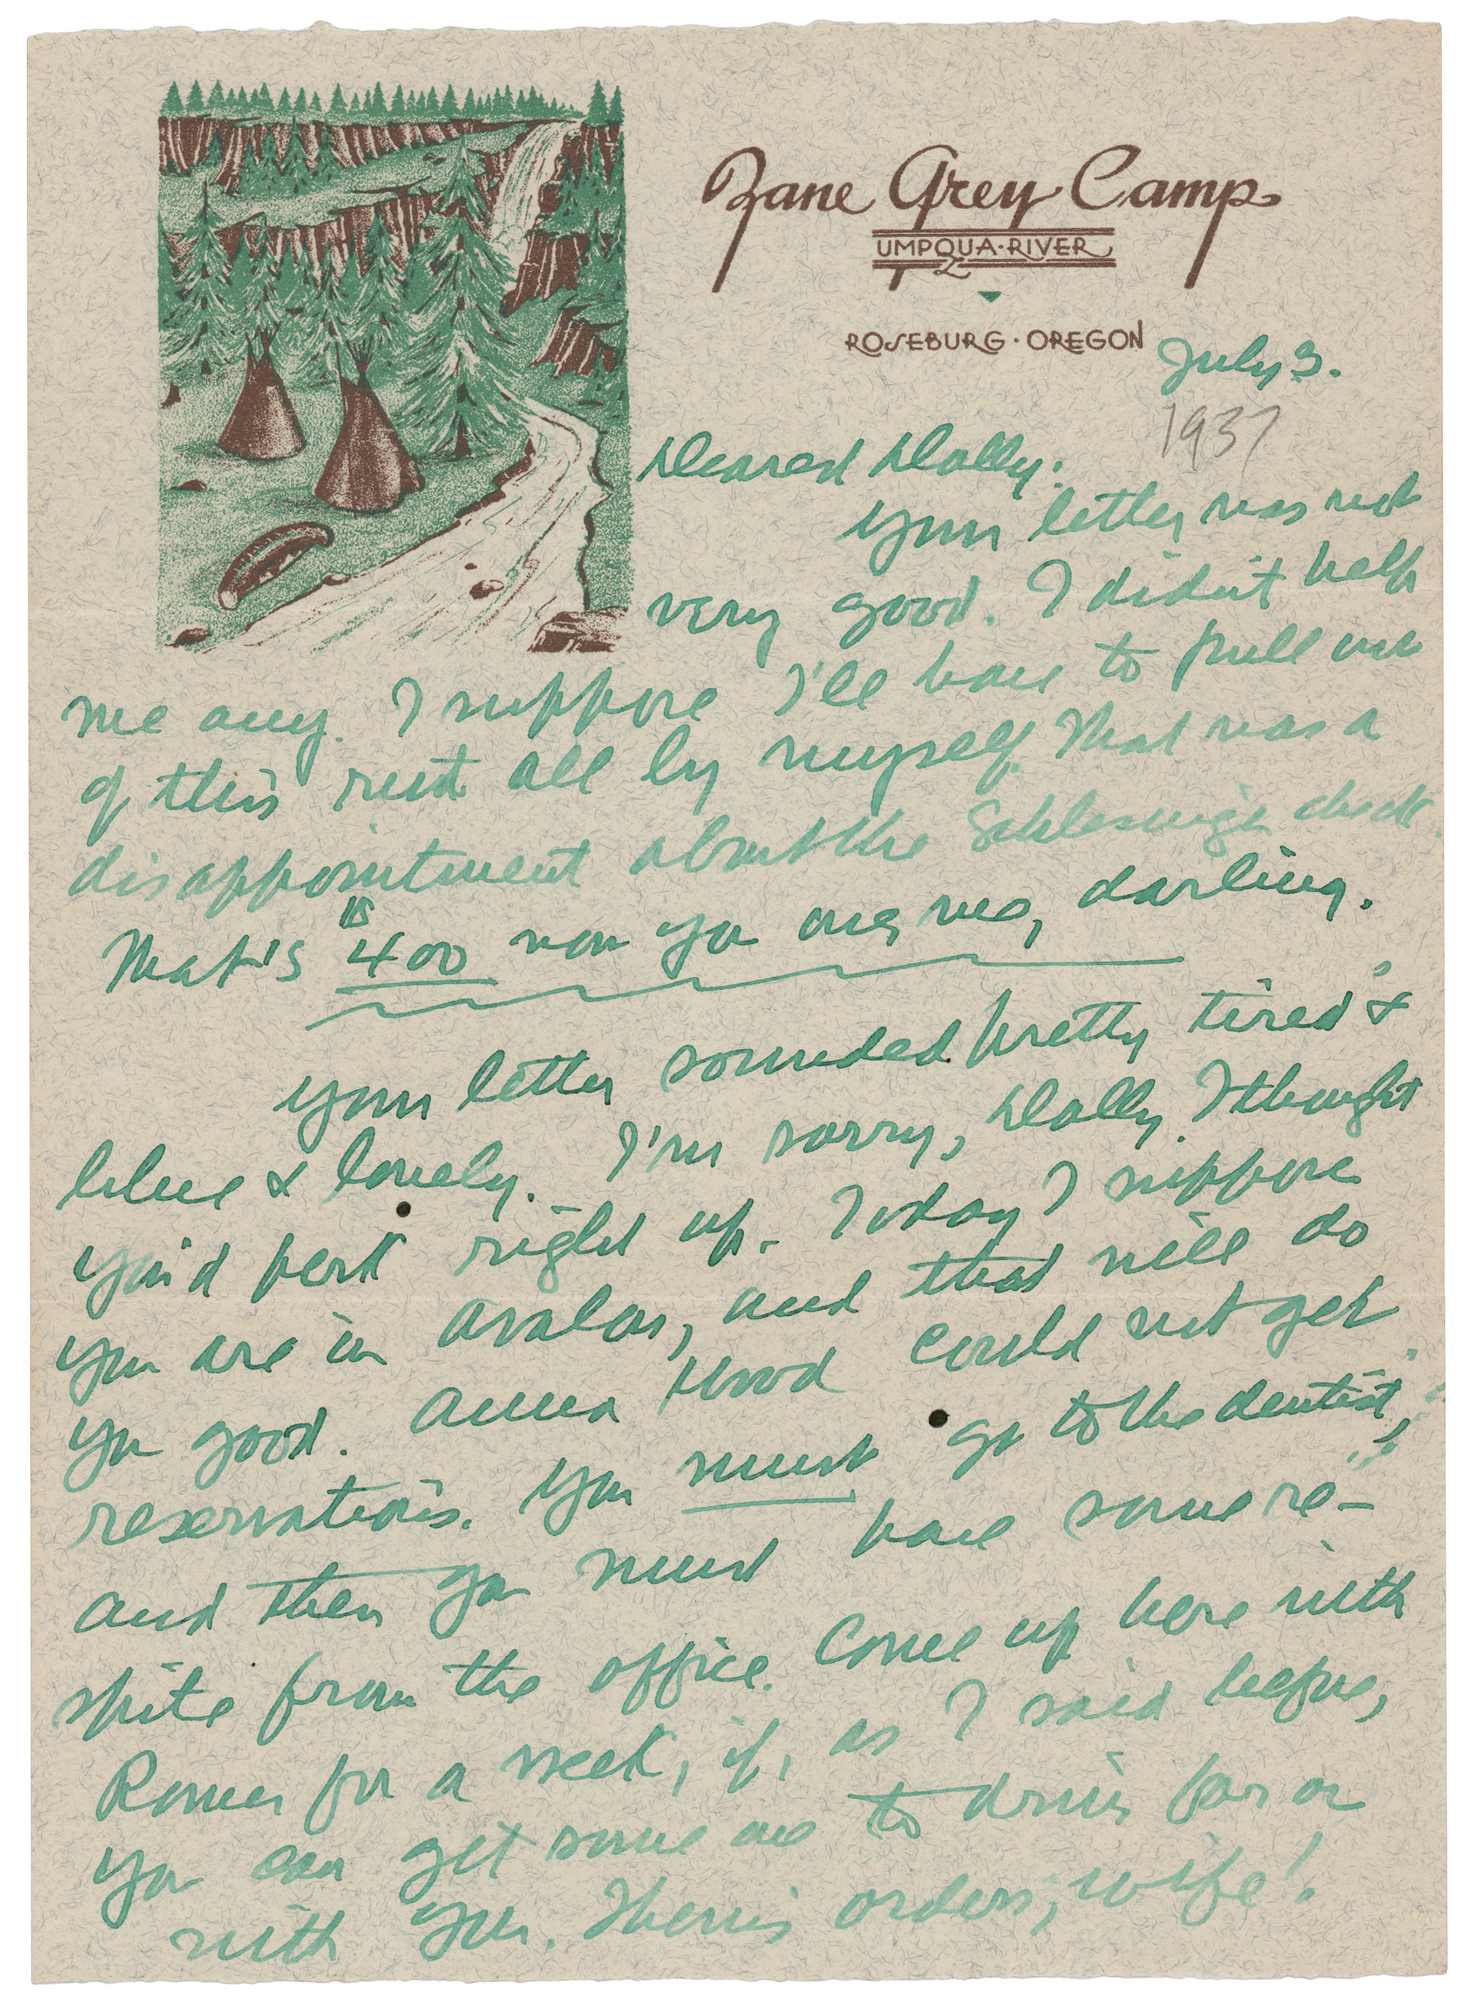 Zane Grey Camp
UMPQUA·RIVER
ROSEBURG·OREGON
July 3.
1937
Dearest Dolly:
Your letter was not
very good. I didn't help
me any. I suppose I'll have to pull out
of this rut all by myself. That was a
disappointment about the Schleswige check.
That's $400 now you owe me, darling.
Your letter sounded pretty tired &
blue & lonely. I'm sorry, Dolly. I thought
you'd perk right up. Today I suppose
you are in Avalon, and that will do
you good. Anna Wood could not get
reservations. You must go to the dentist,
and then you must have some re-
spite from the office. Come up here with
Romer for a week, if, as I said before,
you can get some one to drive for or
with you. Them's orders, wife!